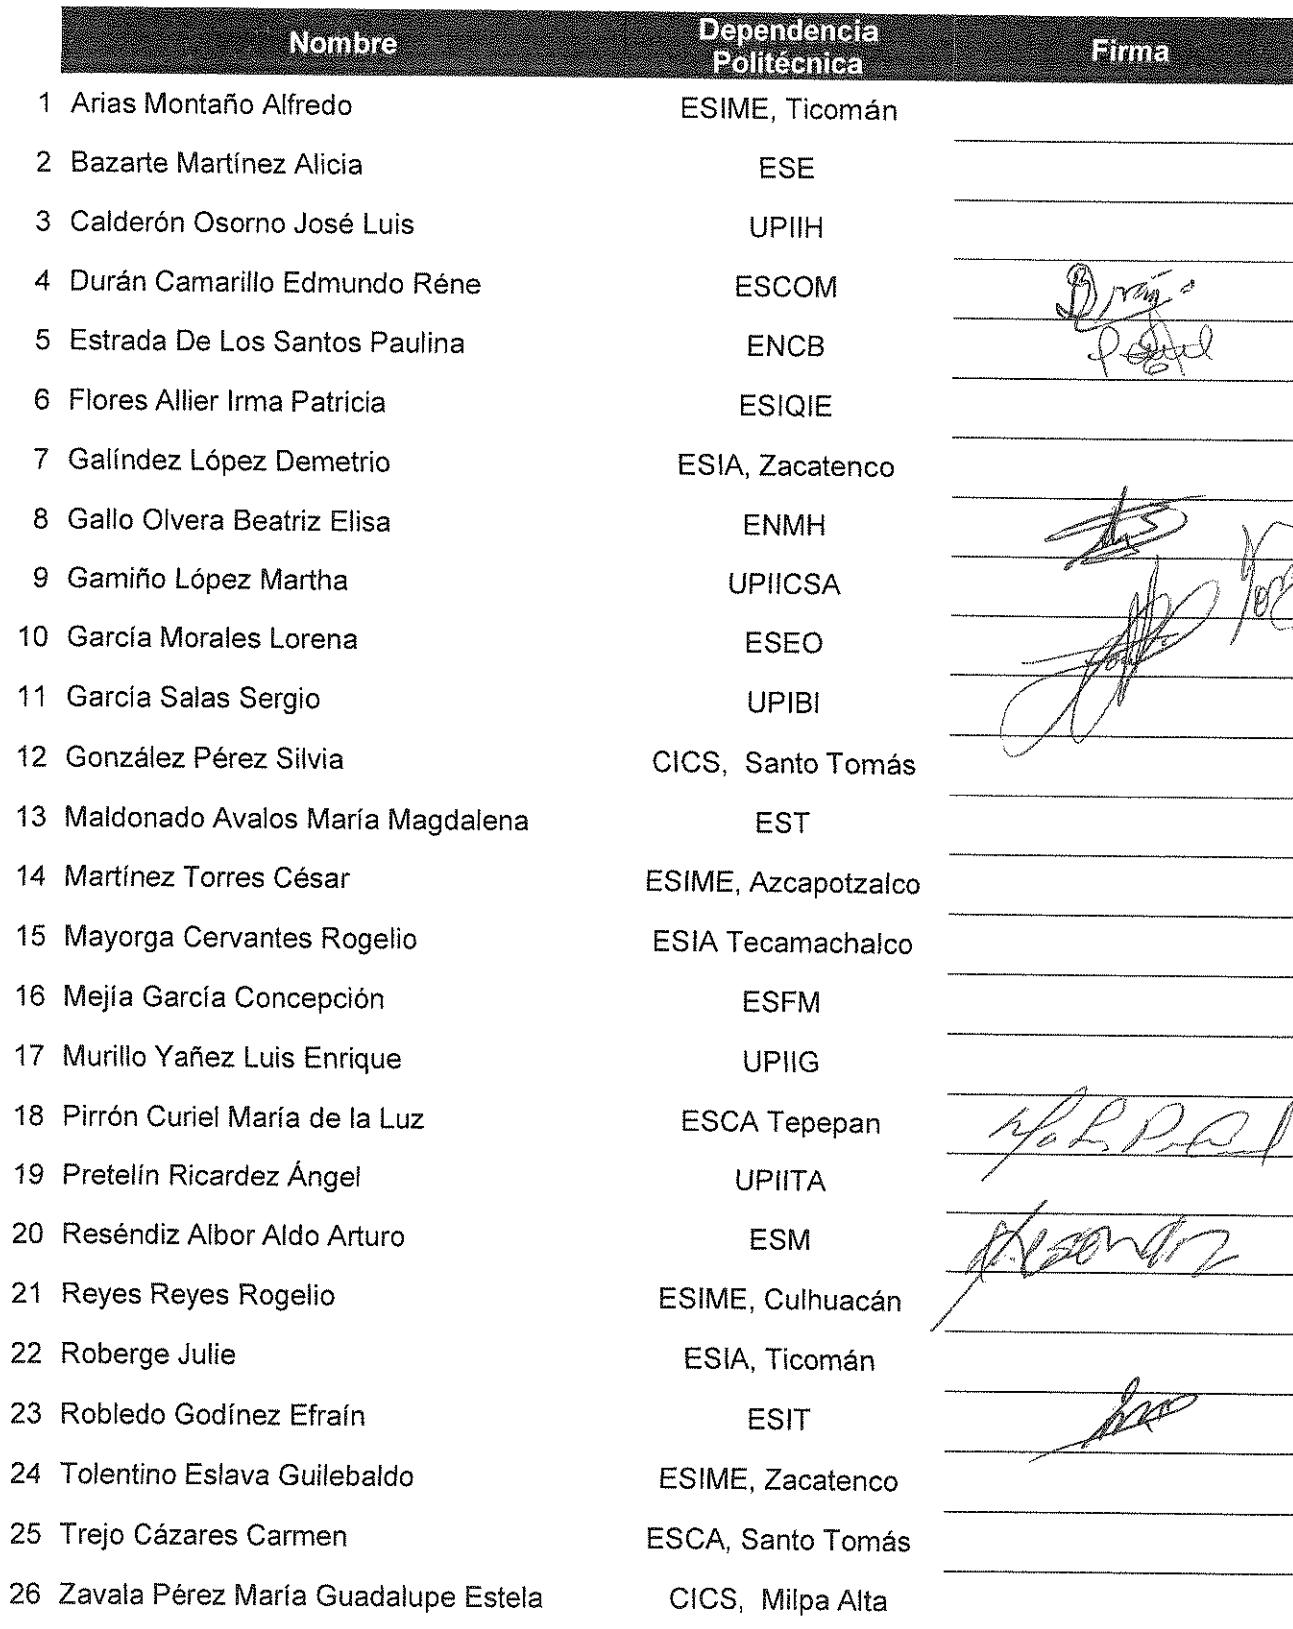 Nombre Dependencia Politécnica Firma
1 Arias Montaño Alfredo ESIME, Ticomán
2 Bazarte Martínez Alicia ESE
3 Calderón Osorno José Luis UPIIH
4 Durán Camarillo Edmundo Réne ESCOM
5 Estrada De Los Santos Paulina ENCB
6 Flores Allier Irma Patricia ESIQIE
7 Galíndez López Demetrio ESIA, Zacatenco
8 Gallo Olvera Beatriz Elisa ENMH
9 Gamiño López Martha UPIICSA
10 García Morales Lorena ESEO
11 García Salas Sergio UPIBI
12 González Pérez Silvia CICS, Santo Tomás
13 Maldonado Avalos María Magdalena EST
14 Martínez Torres César ESIME, Azcapotzalco
15 Mayorga Cervantes Rogelio ESIA Tecamachalco
16 Mejía García Concepción ESFM
17 Murillo Yañez Luis Enrique UPIIG
18 Pirrón Curiel María de la Luz ESCA Tepepan
19 Pretelín Ricardez Ángel UPIITA
20 Reséndiz Albor Aldo Arturo ESM
21 Reyes Reyes Rogelio ESIME, Culhuacán
22 Roberge Julie ESIA, Ticomán
23 Robledo Godínez Efraín ESIT
24 Tolentino Eslava Guilebaldo ESIME, Zacatenco
25 Trejo Cázares Carmen ESCA, Santo Tomás
26 Zavala Pérez María Guadalupe Estela CICS, Milpa Alta